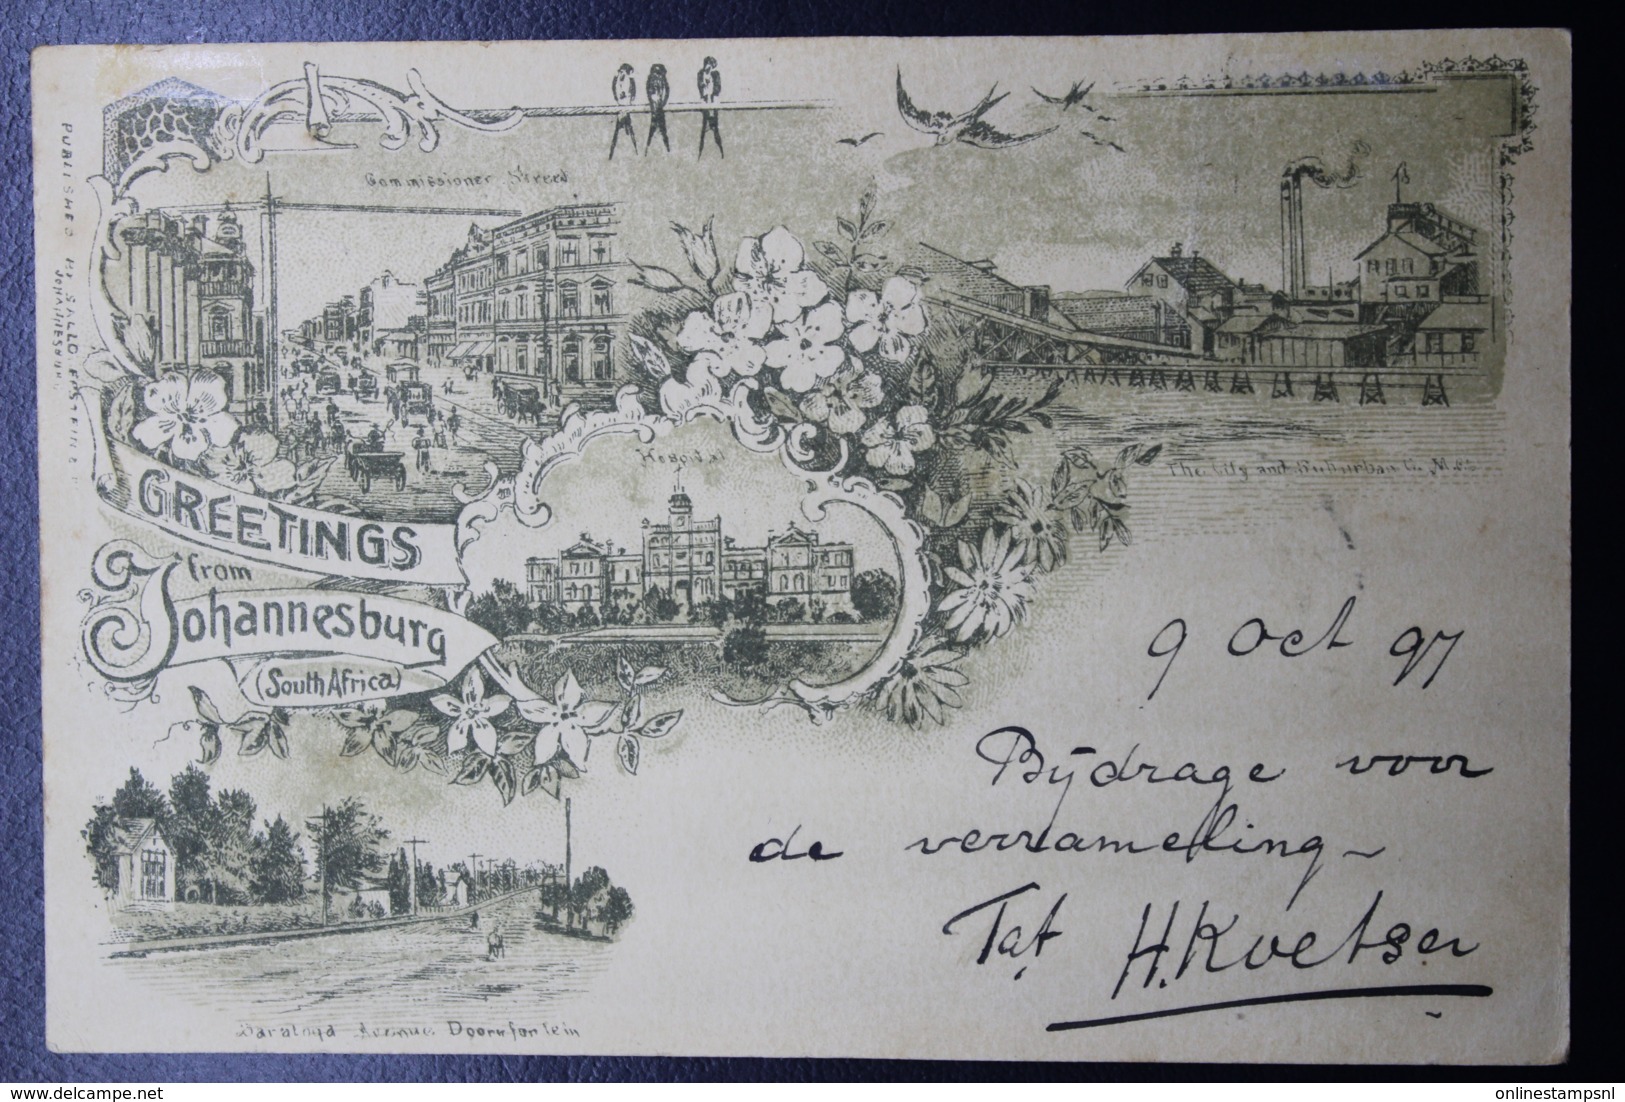 PUBLISHED BY SALLO EPSTEIN &
JOHANNESBURG
Commissioner Street
Hospital
The City and Suburban G. M. Co.
GREETINGS
from
Johannesburg
(South Africa)
9 Oct 97
Bijdrage voor
de verzameling -
Taf H. Koetser
Saratoga Avenue Doornfontein
onlinestampsnl